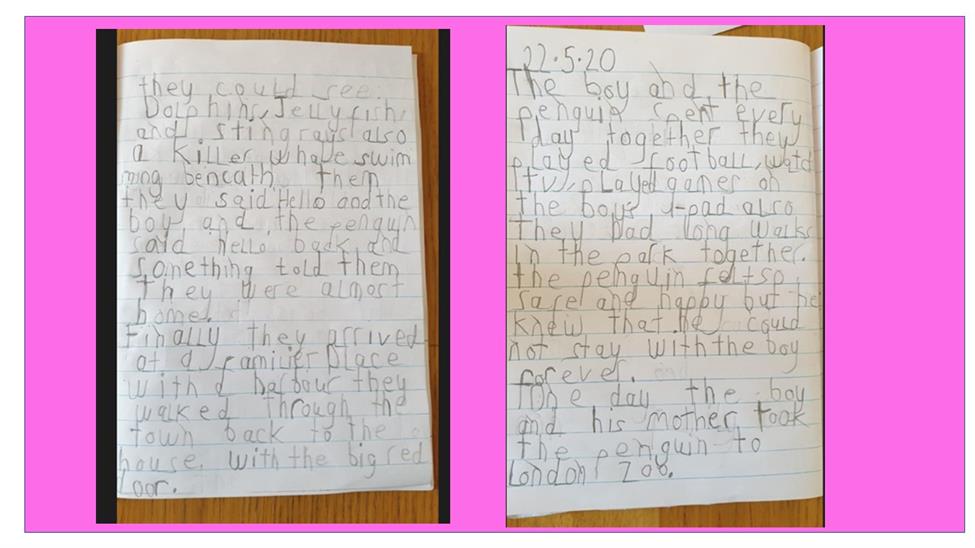 they could see:
Dolphins, Jellyfish,
and stingrays also
a killer whale swim
ming beneath them
they said Hello and the
boy and the penguin
said hello back and
something told them
They were almost
home.
Finally they arrived
at a familier place
with a harbour they
walked through the
town back to the
house. with the big red
Loor.
22.5.20
The boy and the
penguin spent every
day together they
played football, watch
Tv, played games on
the boys i-pad also
They had long walks
in the park together.
the penguin felt so
safe and happy but he
knew that he could
not stay with the boy
forever.
One day the boy
and his mother took
the penguin to
London Zoo.